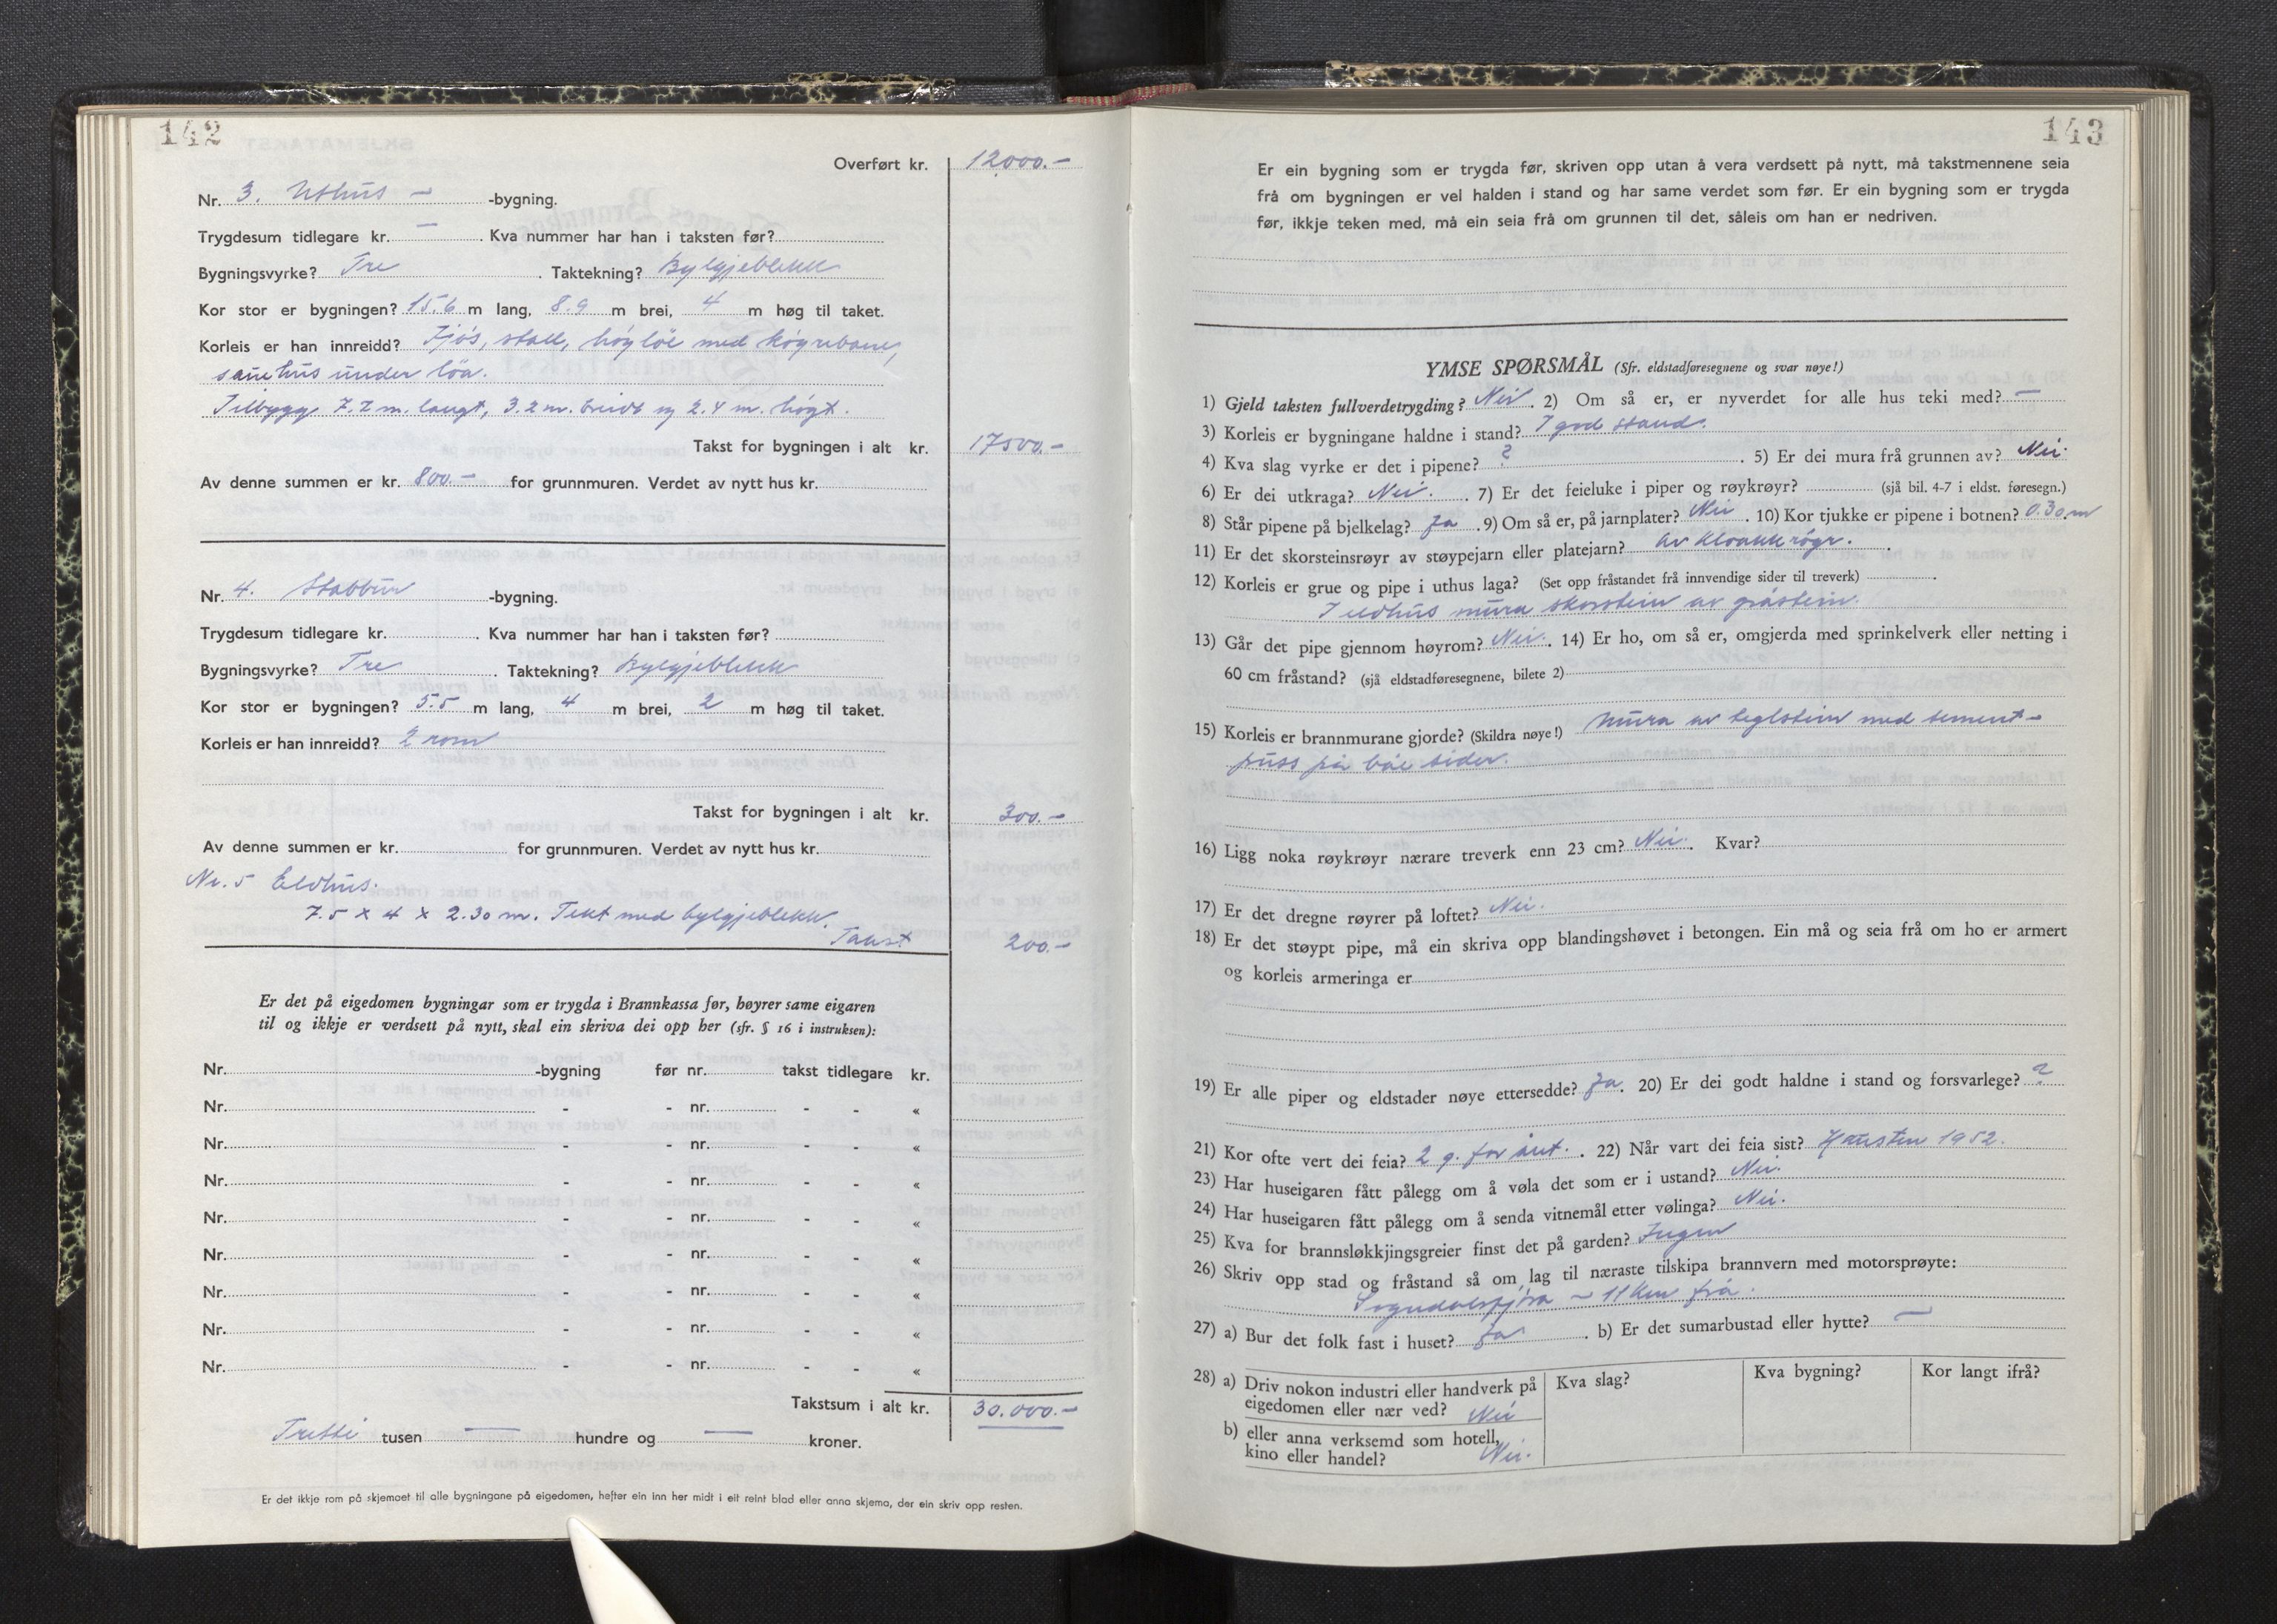 142
Overført kr. 12000.-
Nr. 3. Uthus - -bygning.
Trygdesum tidlegare kr. - . Kva nummer har han i taksten før?
Bygningsvyrke? Tre . Taktekning? Bylgjeblekk
Kor stor er bygningen? 15.6 m lang, 8.9 m brei, 4 m høg til taket.
Korleis er han innreidd? Fjós, stall, høyløe med køyrebane,
sauehus under löa.
Tilbygg 7.2 m. langt, 3.2 m. breidt og 2.4 m. högt.
Takst for bygningen i alt kr. 17500.-
Av denne summen er kr. 800.- for grunnmuren. Verdet av nytt hus kr.
Nr. 4. Stabbur -bygning.
Trygdesum tidlegare kr. . Kva nummer har han i taksten før?
Bygningsvyrke? Tre . Taktekning? Bylgjeblekk
Kor stor er bygningen? 5.5 m lang, 4 m brei, 2 m høg til taket.
Korleis er han innreidd? 2 rom
Takst for bygningen i alt kr. 300.-
Av denne summen er kr. for grunnmuren. Verdet av nytt hus kr.
Nr. 5 Eldhus.
7.5 x 4 x 2.30 m. Tekt med bylgjeblekk.
Takst 200.-
Er det på eigedomen bygningar som er trygda i Brannkassa før, høyrer same eigaren
til og ikkje er verdsett på nytt, skal ein skriva dei opp her (sfr. § 16 i instruksen):
Nr. -bygning før nr. takst tidlegare kr.
Nr. - - nr. - - «
Nr. - - nr. - - «
Nr. - - nr. - - «
Nr. - - nr. - - «
Nr. - - nr. - - «
Nr. - - nr. - - «
Nr. - - nr. - - «
Nr. - - nr. - - «
Takstsum i alt kr. 30.000.-
Tretti tusen — hundre og — kroner.
Er det ikkje rom på skjemaet til alle bygningane på eigedomen, hefter ein inn her midt i eit reint blad eller anna skjema, der ein skriv opp resten.
143
Er ein bygning som er trygda før, skriven opp utan å vera verdsett på nytt, må takstmennene seia
frå om bygningen er vel halden i stand og har same verdet som før. Er ein bygning som er trygda
før, ikkje teken med, må ein seia frå om grunnen til det, såleis om han er nedriven.
YMSE SPØRSMÅL (Sfr. eldstadføresegnene og svar nøye!)
1) Gjeld taksten fullverdetrygding? Nei . 2) Om så er, er nyverdet for alle hus teki med? —
3) Korleis er bygningane haldne i stand? I god stand.
4) Kva slag vyrke er det i pipene? ? . 5) Er dei mura frå grunnen av? Nei.
6) Er dei utkraga? Nei. . 7) Er det feieluke i piper og røykrøyr? (sjå bil. 4-7 i eldst. føresegn.)
8) Står pipene på bjelkelag? Ja . 9) Om så er, på jarnplater? Nei . 10) Kor tjukke er pipene i botnen? 0.30 m
11) Er det skorsteinsrøyr av støypejarn eller platejarn? Av kloakkröyr. .
12) Korleis er grue og pipe i uthus laga? (Set opp fråstandet frå innvendige sider til treverk) .
I eldhus mura skorstein av gråstein.
13) Går det pipe gjennom høyrom? Nei. . 14) Er ho, om så er, omgjerda med sprinkelverk eller netting i
60 cm fråstand? (sjå eldstadføresegnene, bilete 2)
15) Korleis er brannmurane gjorde? (Skildra nøye!) Mura av teglstein med sement-
puss på båe sider.
16) Ligg noka røykrøyr nærare treverk enn 23 cm? Nei. . Kvar?
17) Er det dregne røyrer på loftet? Nei.
18) Er det støypt pipe, må ein skriva opp blandingshøvet i betongen. Ein må og seia frå om ho er armert
og korleis armeringa er
19) Er alle piper og eldstader nøye ettersedde? Ja . 20) Er dei godt haldne i stand og forsvarlege? ?
21) Kor ofte vert dei feia? 2 g. for året. . 22) Når vart dei feia sist? Hausten 1952.
23) Har huseigaren fått pålegg om å vøla det som er i ustand? Nei.
24) Har huseigaren fått pålegg om å senda vitnemål etter vølinga? Nei.
25) Kva for brannsløkkjingsgreier finst det på garden? Ingen
26) Skriv opp stad og fråstand så om lag til næraste tilskipa brannvern med motorsprøyte:
Sogndalsfjöra - 11 km frå.
27) a) Bur det folk fast i huset? Ja . b) Er det sumarbustad eller hytte? —
28) a) Driv nokon industri eller handverk på Kva slag? Kva bygning? Kor langt ifrå?
eigedomen eller nær ved? Nei
b) eller anna verksemd som hotell,
kino eller handel? Nei.